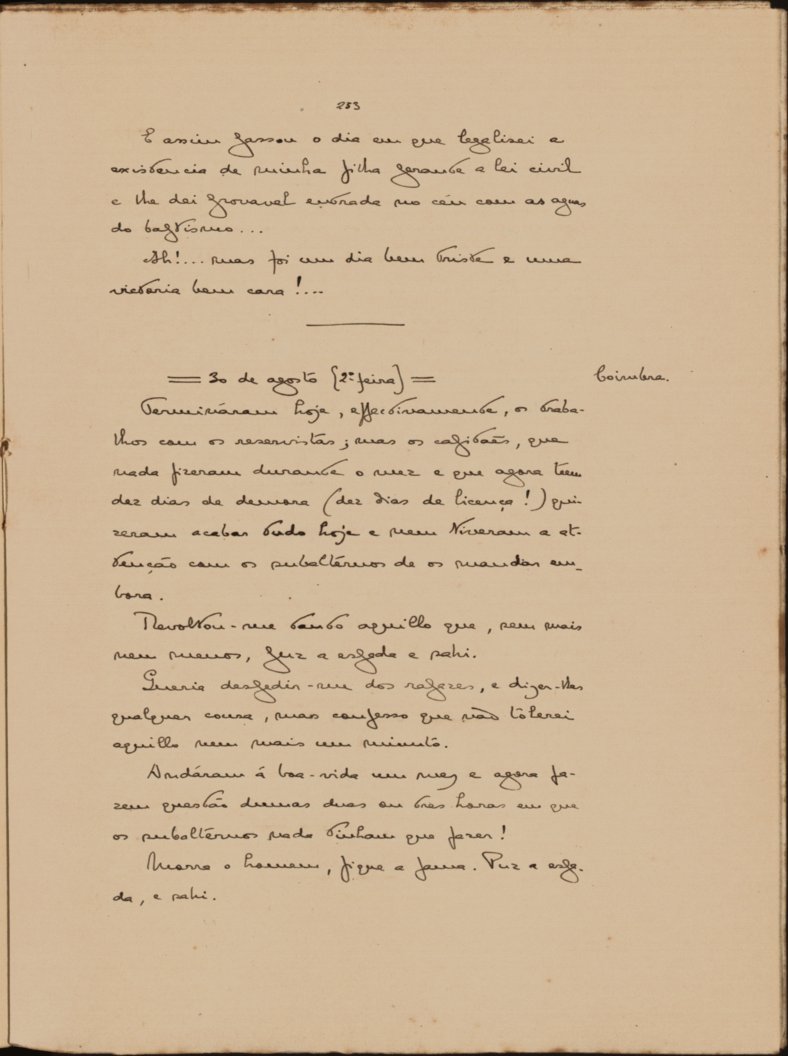 253
E assim passou o dia em que legalisei a
existencia de minha filha perante a lei civil
e lhe dei provavel entrada no céu com as aguas
do baptismo...
Ah!... mas foi um dia bem triste e uma
victoria bem cara!...
= 30 de agosto (2ª-feira) =
Coimbra.
Termináram hoje, effectivamente, os traba-
lhos com os reservistas; mas os capitães, que
nada fizeram durante o mez e que agora teem
dez dias de demora (dez dias de licença!) qui-
zeram acabar tudo hoje e nem tiveram a at-
tenção com os subaltérnos de os mandar em-
bora.
Revoltou-me tanto aquillo que, sem mais
nem menos, puz a espada e sahi.
Queria despedir-me dos rapazes, e dizer-lhes
qualquer cousa, mas confesso que não tolerei
aquillo nem mais um minuto.
Andáram á boa-vida um mez e agora fa-
zem questão dumas duas ou tres horas em que
os subaltérnos nada tinham que fazer!
Morra o homem, fique a fama. Puz a espa-
da, e sahi.